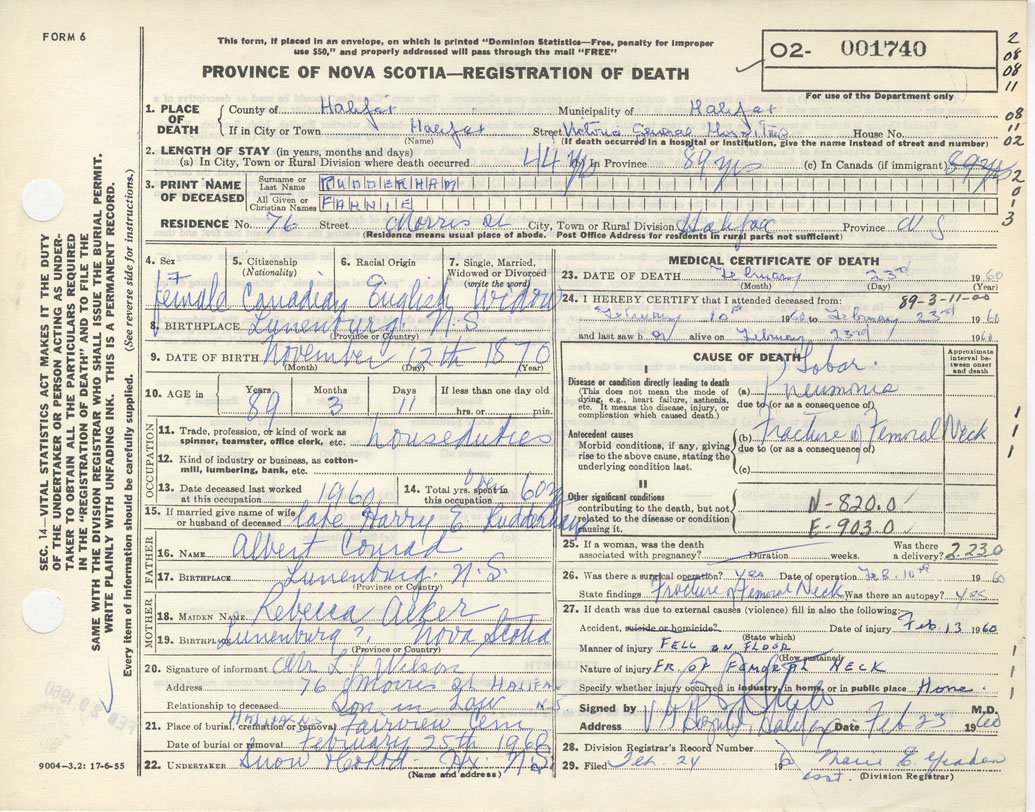 FORM 6
This form, if placed in an envelope, on which is printed "Dominion Statistics—Free, penalty for improper
use $50," and properly addressed will pass through the mail "FREE"
PROVINCE OF NOVA SCOTIA—REGISTRATION OF DEATH
02- 001740
For use of the Department only
2
08
08
11
08
11
02
2
0
3
1. PLACE OF DEATH County of Halifax Municipality of Halifax
If in City or Town Halifax Street Victoria General Hospital House No.
(Name) (If death occurred in a hospital or institution, give the name instead of street and number)
2. LENGTH OF STAY (in years, months and days)
(a) In City, Town or Rural Division where death occurred 44 yrs (b) In Province 89 yrs (c) In Canada (if immigrant) 89 yrs
3. PRINT NAME OF DECEASED Surname or Last Name RUDDERHAM
All Given or Christian Names FANNIE
RESIDENCE No. 76 Street Morris St City, Town or Rural Division Halifax Province N S
(Residence means usual place of abode. Post Office Address for residents in rural parts not sufficient)
4. Sex 5. Citizenship (Nationality) 6. Racial Origin 7. Single, Married, Widowed or Divorced (write the word)
Female Canadian English Widow
8. BIRTHPLACE Lunenburg N.S
(Province or Country)
9. DATE OF BIRTH November 12th 1870
(Month) (Day) (Year)
10. AGE in Years Months Days If less than one day old
89 3 11 hrs. or min.
OCCUPATION
11. Trade, profession, or kind of work as
spinner, teamster, office clerk, etc. houseduties
12. Kind of industry or business, as cotton-
mill, lumbering, bank, etc.
13. Date deceased last worked
at this occupation 1960
14. Total yrs. spent in
this occupation 60
15. If married give name of wife
or husband of deceased late Harry E Rudderham
FATHER
16. NAME Albert Conrad
17. BIRTHPLACE Lunenburg. N.S.
(Province or Country)
MOTHER
18. MAIDEN NAME Rebecca
19. BIRTHPLACE Lunenburg ?. Nova Scotia
(Province or Country)
20. Signature of informant Wilson
Address 76 Morris St HALIFAX N-S
Relationship to deceased Son in Law
21. Place of burial, cremation or removal HALIFAX N.S Fairview Cem
Date of burial or removal February 25th 1960
22. UNDERTAKER Snow Hx. N.S.
(Name and address)
MEDICAL CERTIFICATE OF DEATH
23. DATE OF DEATH February 23rd 1960
(Month) (Day) (Year)
24. I HEREBY CERTIFY that I attended deceased from: 89-3-11-00
February 10th 1960 to February 23rd 1960
and last saw h er alive on February 23rd 1960
CAUSE OF DEATH
Approximate
interval be-
tween onset
and death
I
Disease or condition directly leading to death
(This does not mean the mode of
dying, e.g., heart failure, asthenia,
etc. It means the disease, injury, or
complication which caused death.)
(a) Lobar Pneumonia
due to (or as a consequence of)
Antecedent causes
Morbid conditions, if any, giving
rise to the above cause, stating the
underlying condition last.
(b) Fracture of Femoral Neck
due to (or as a consequence of)
(c)
II
Other significant conditions
contributing to the death, but not
related to the disease or condition
causing it.
N-820.0
E-903.0
1
1
1
25. If a woman, was the death
associated with pregnancy? Duration weeks. Was there a delivery? 2.230
26. Was there a surgical operation? yes Date of operation Feb. 10th 1960
State findings Fracture of Femoral Neck Was there an autopsy? yes
27. If death was due to external causes (violence) fill in also the following:
Accident, suicide or homicide? Date of injury Feb. 13 1960
(State which)
Manner of injury FELL ON FLOOR
(How sustained)
Nature of injury FR. OF FEMORAL NECK
Specify whether injury occurred in industry, in home, or in public place Home.
1
1
Signed by M.D.
Address Halifax Date Feb 23 1960
28. Division Registrar's Record Number
29. Filed Feb. 24 19
asst. (Division Registrar)
SEC. 14—VITAL STATISTICS ACT MAKES IT THE DUTY
OF THE UNDERTAKER OR PERSON ACTING AS UNDER-
TAKER TO OBTAIN ALL THE PARTICULARS REQUIRED
IN THE "REGISTRATION OF DEATH" AND TO FILE THE
SAME WITH THE DIVISION REGISTRAR WHO SHALL ISSUE THE BURIAL PERMIT.
WRITE PLAINLY WITH UNFADING INK. THIS IS A PERMANENT RECORD.
Every item of information should be carefully supplied. (See reverse side for instructions.)
9004—3.2: 17-6-55